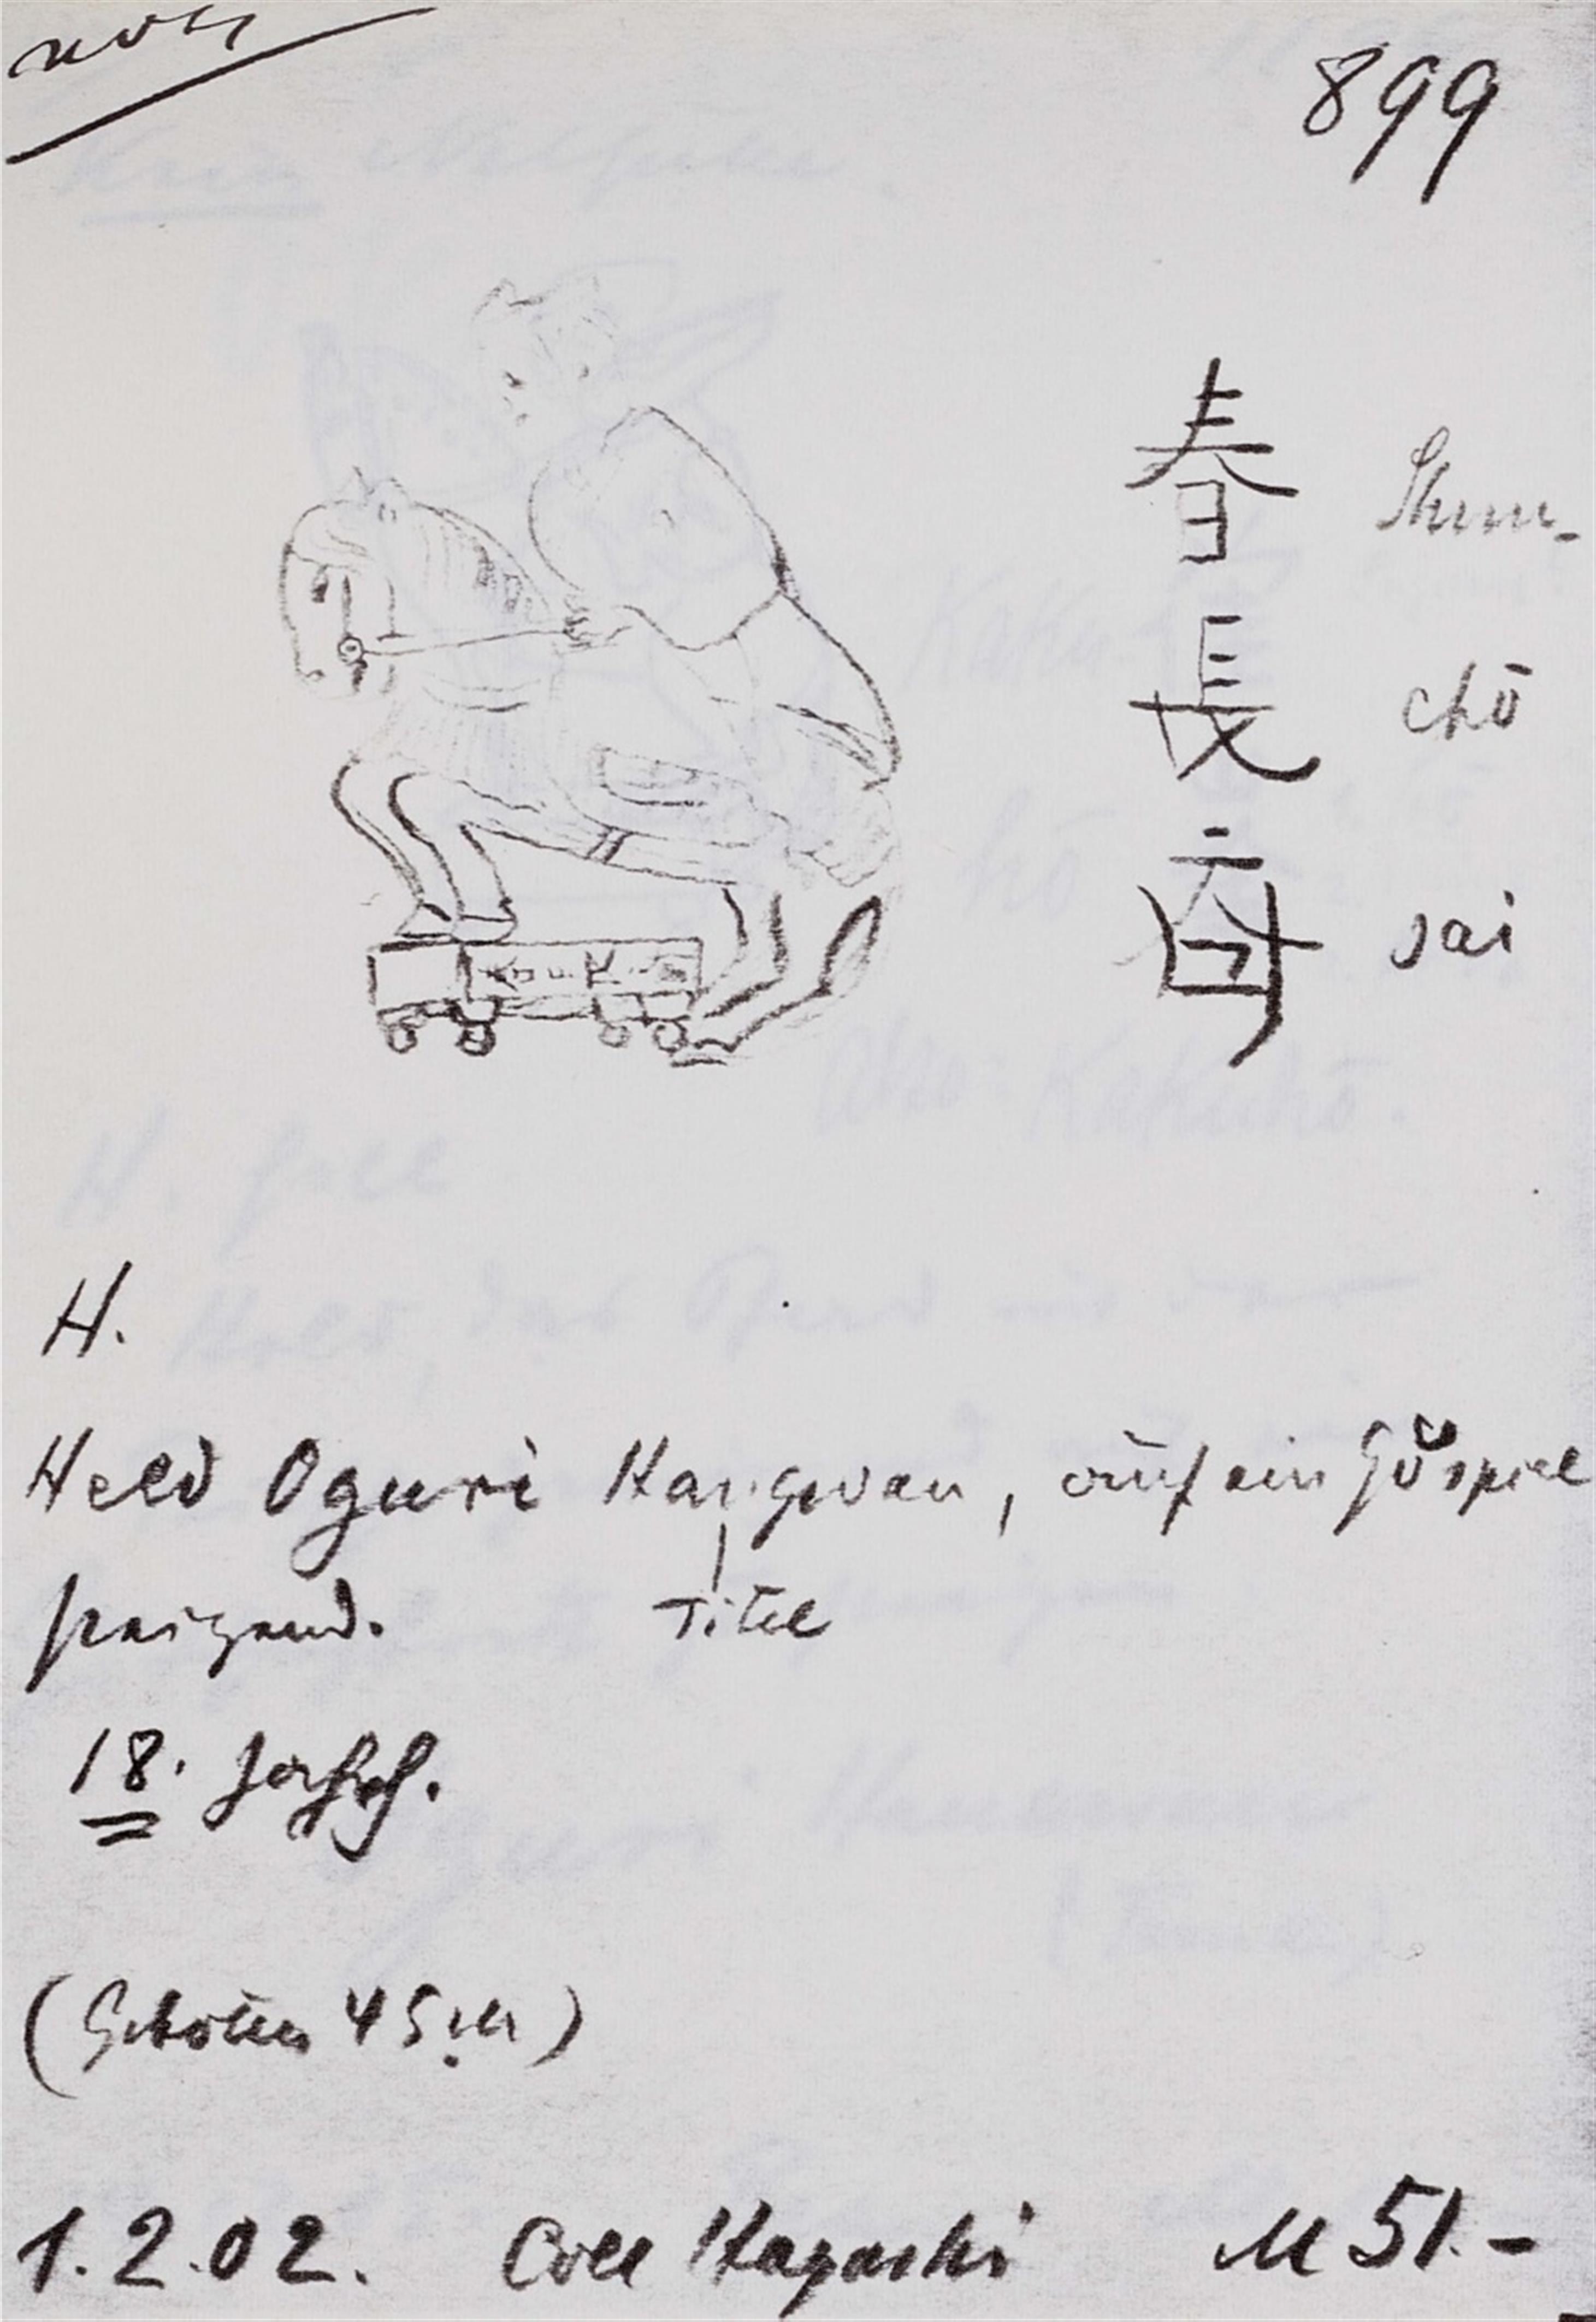 899
春 Shun-
長 chō
斎 sai
H.
Held Oguri Hangwan, auf ein Gŏspiel
steigend. Titel
18. Jahrh.
(Geboten 45 M)
1.2.02. Coll Hayashi M 51.-